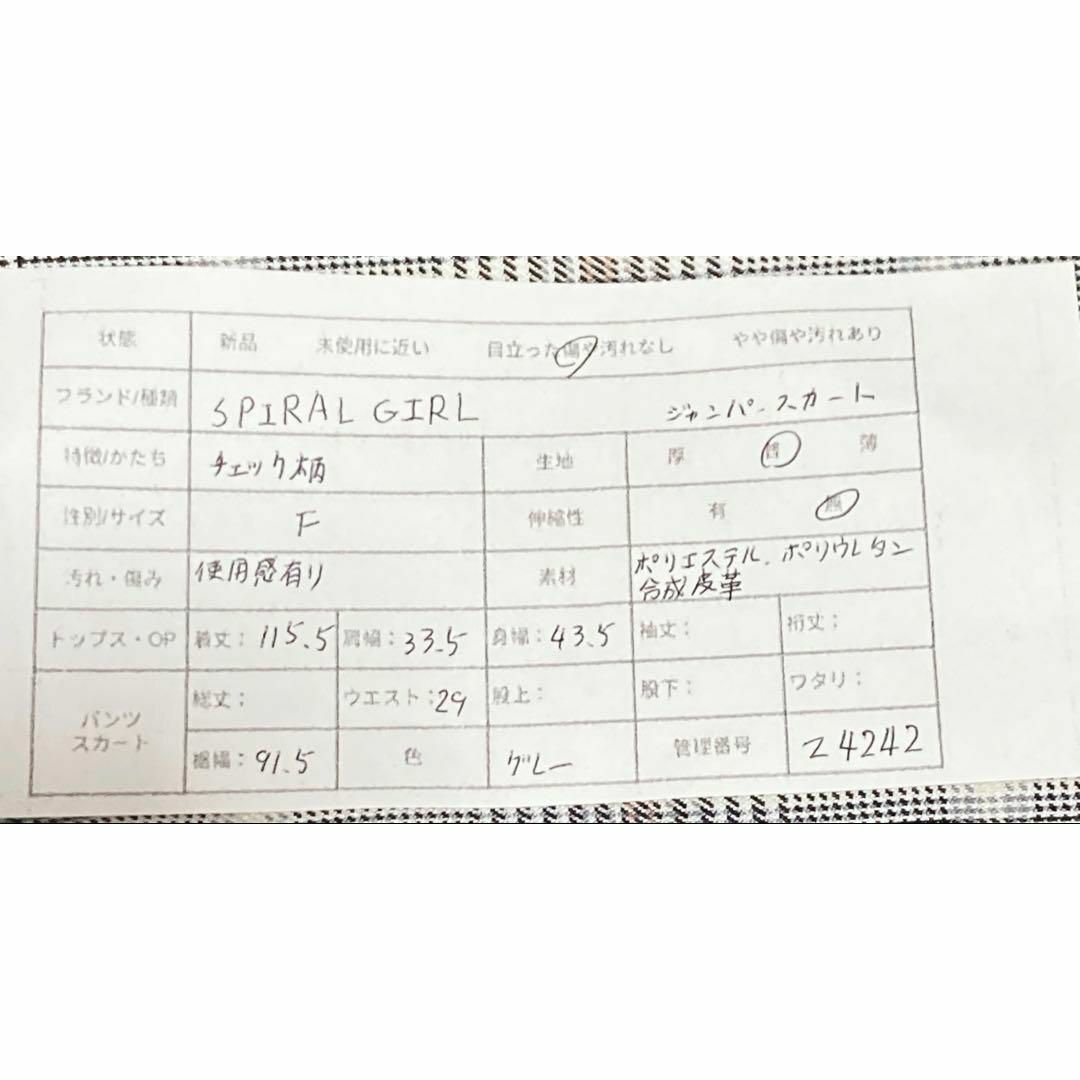 状態 新品 未使用に近い 目立った傷や汚れなし やや傷や汚れあり
ブランド/種類 SPIRAL GIRL ジャンパースカート
特徴/かたち チェック柄 生地 厚 普 薄
性別/サイズ F 伸縮性 有 無
汚れ・傷み 使用感有り 素材 ポリエステル、ポリウレタン
合成皮革
トップス・OP 着丈：115.5 肩幅：33.5 身幅：43.5 袖丈： 裄丈：
パンツ
スカート
総丈： ウエスト：29 股上： 股下： ワタリ：
裾幅：91.5 色 グレー 管理番号 Z4242